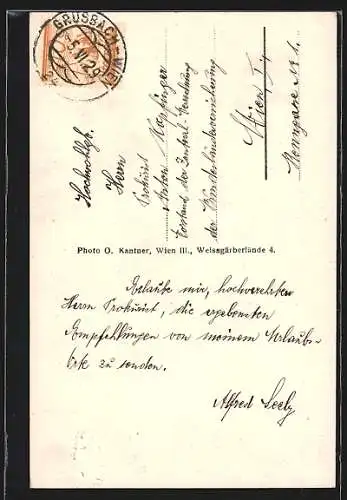 GRUSBACH-WIEN
Hochwohlgb.
Herrn
Prokurist
Anton Kopfinger
Vorstand der Zentral-
der
Wien I,
Renngasse No 1.
Photo O. Kantner, Wien III., Weissgärberlände 4.
Erlaube mir, hochverehrten
Herrn Prokurist, die ergebensten
Empfehlungen von meinem Urlaubs-
Orte zu senden.
Alfred Seely